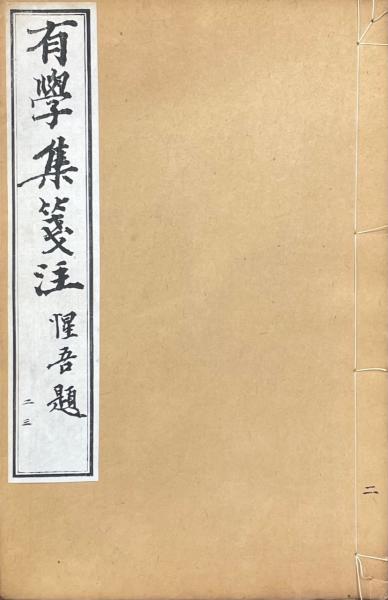 有學集箋注
惺吾題
二三
二